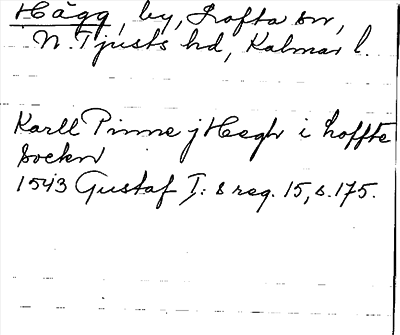 Hägg, by, Lofta sn,
N. Tjusts hd, Kalmar l.
Karll Pinne j Hegh i Loffte
sockn
1543 Gustaf I: s reg. 15, s. 175.